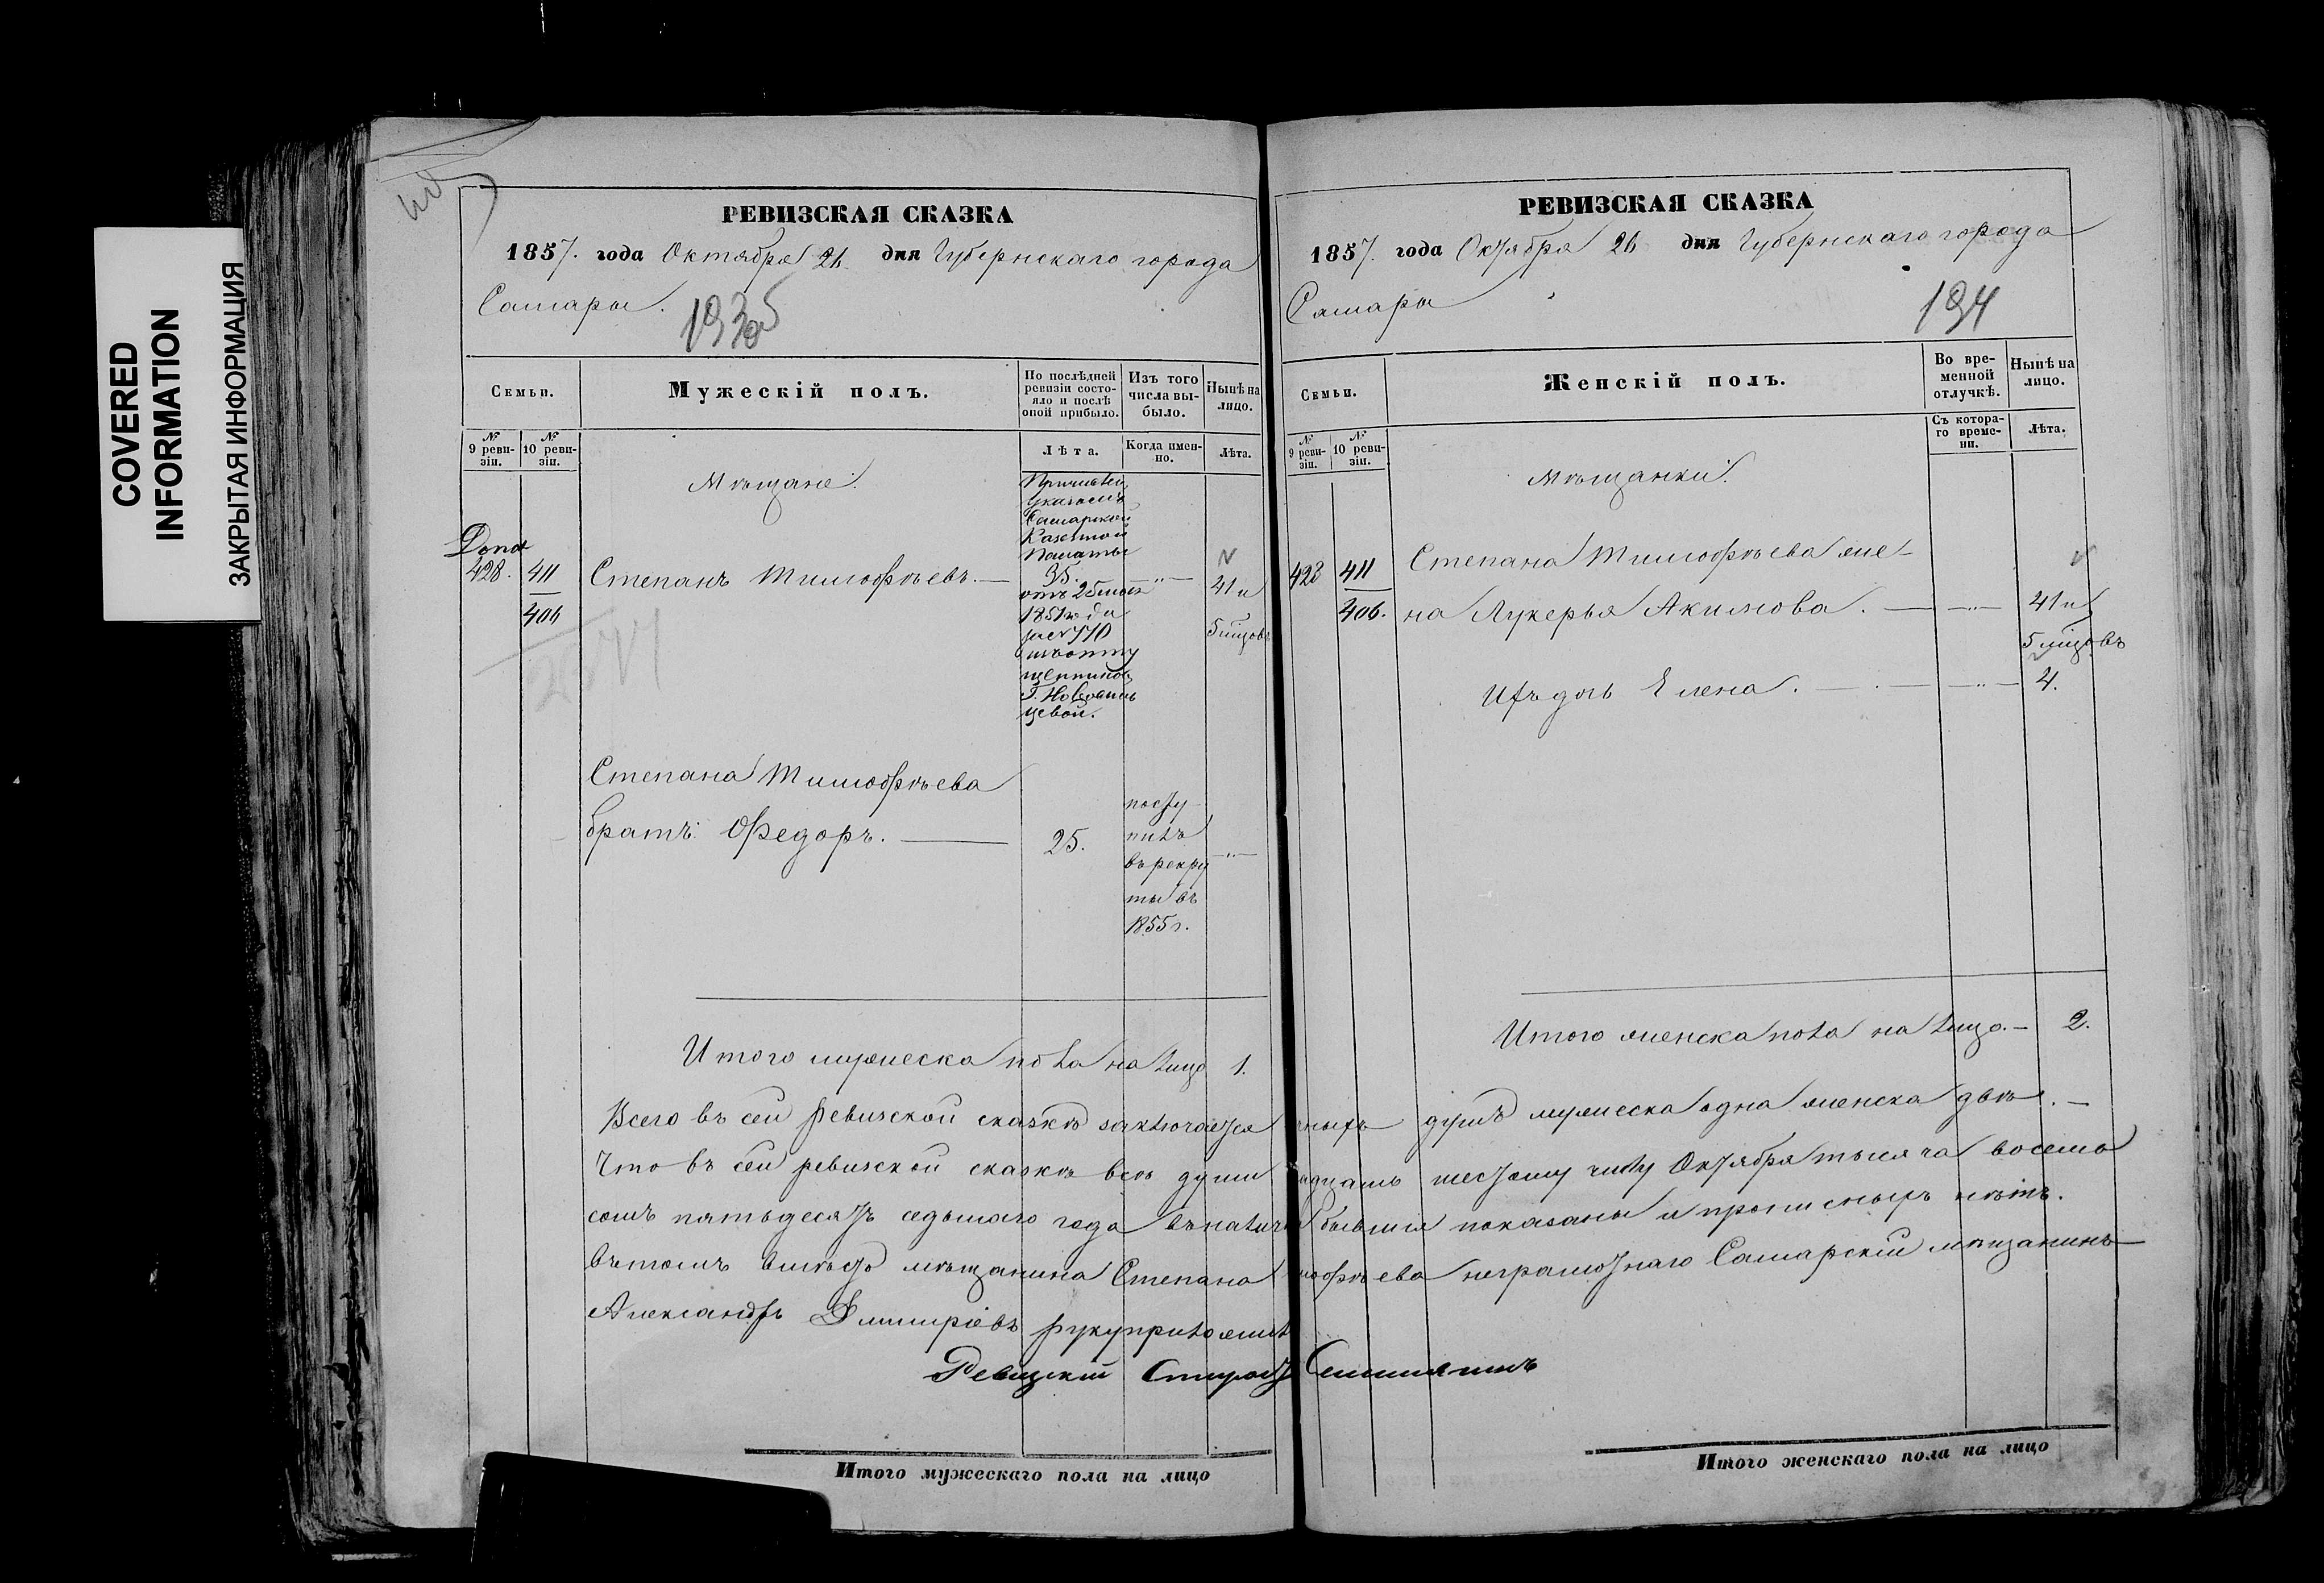 COVERED
INFORMATION
ЗАКРЫТАЯ ИНФОРМАЦИЯ
РЕВИЗСКАЯ СКАЗКА
1857. года Октября 26 дня Губернскаго города
Самары.
193
Семьи.
Мужескій полъ.
По послѣдней ревизіи состо-
яло и послѣ
оной прибыло.
Изъ того
числа вы-
было.
Нынѣ на
лицо.
№
9 реви-
зіи.
№
10 реви-
зіи.
Лѣта.
Когда имен-
но.
Лѣта.
Мѣщане.
Причислен
Указомъ
Самарской
Казенной
Палаты
428. 411 Степанъ Тимофѣевъ. — 35. —"— 41 и
406
отъ 25 мая
1851 года
за № 770
5 мѣсцовъ
Степана Тимофѣева
братъ Ѳедоръ. — 25.
посту
пилъ
въ рекру
ты въ
1855 г.
—"—
Итого мужеска пола на лицо 1.
РЕВИЗСКАЯ СКАЗКА
1857. года Октября 26 дня Губернскаго города
Самары
194
Семьи.
Женскій полъ.
Во вре-
менной
отлучкѣ.
Нынѣ на
лицо.
№
9 реви-
зіи.
№
10 реви-
зіи.
Съ котора-
го време-
ни.
Лѣта.
Мѣщанки.
428 411 Степана Тимофѣева же-
406. на Лукерья Акимова. — —"— 41 и
5 мѣсцовъ
Ихъ дочь Елена. — —"— 4.
Итого женска пола на лицо. — 2.
Всего въ сей ревизской сказкѣ заключается душъ мужеска одна женска двѣ. —
Что въ сей ревизской сказкѣ всѣ души шестому числу Октября тысяча восемь
сотъ пятьдесятъ седьмаго года въ наличіи бывшія показаны и прописныхъ нѣтъ.
Въ томъ вмѣсто мѣщанина Степана Тимофѣева неграмотнаго Самарскій мѣщанинъ
Александръ Дмитріевъ руку приложилъ
Ревизскій
Итого мужескаго пола на лицо
Итого женскаго пола на лицо